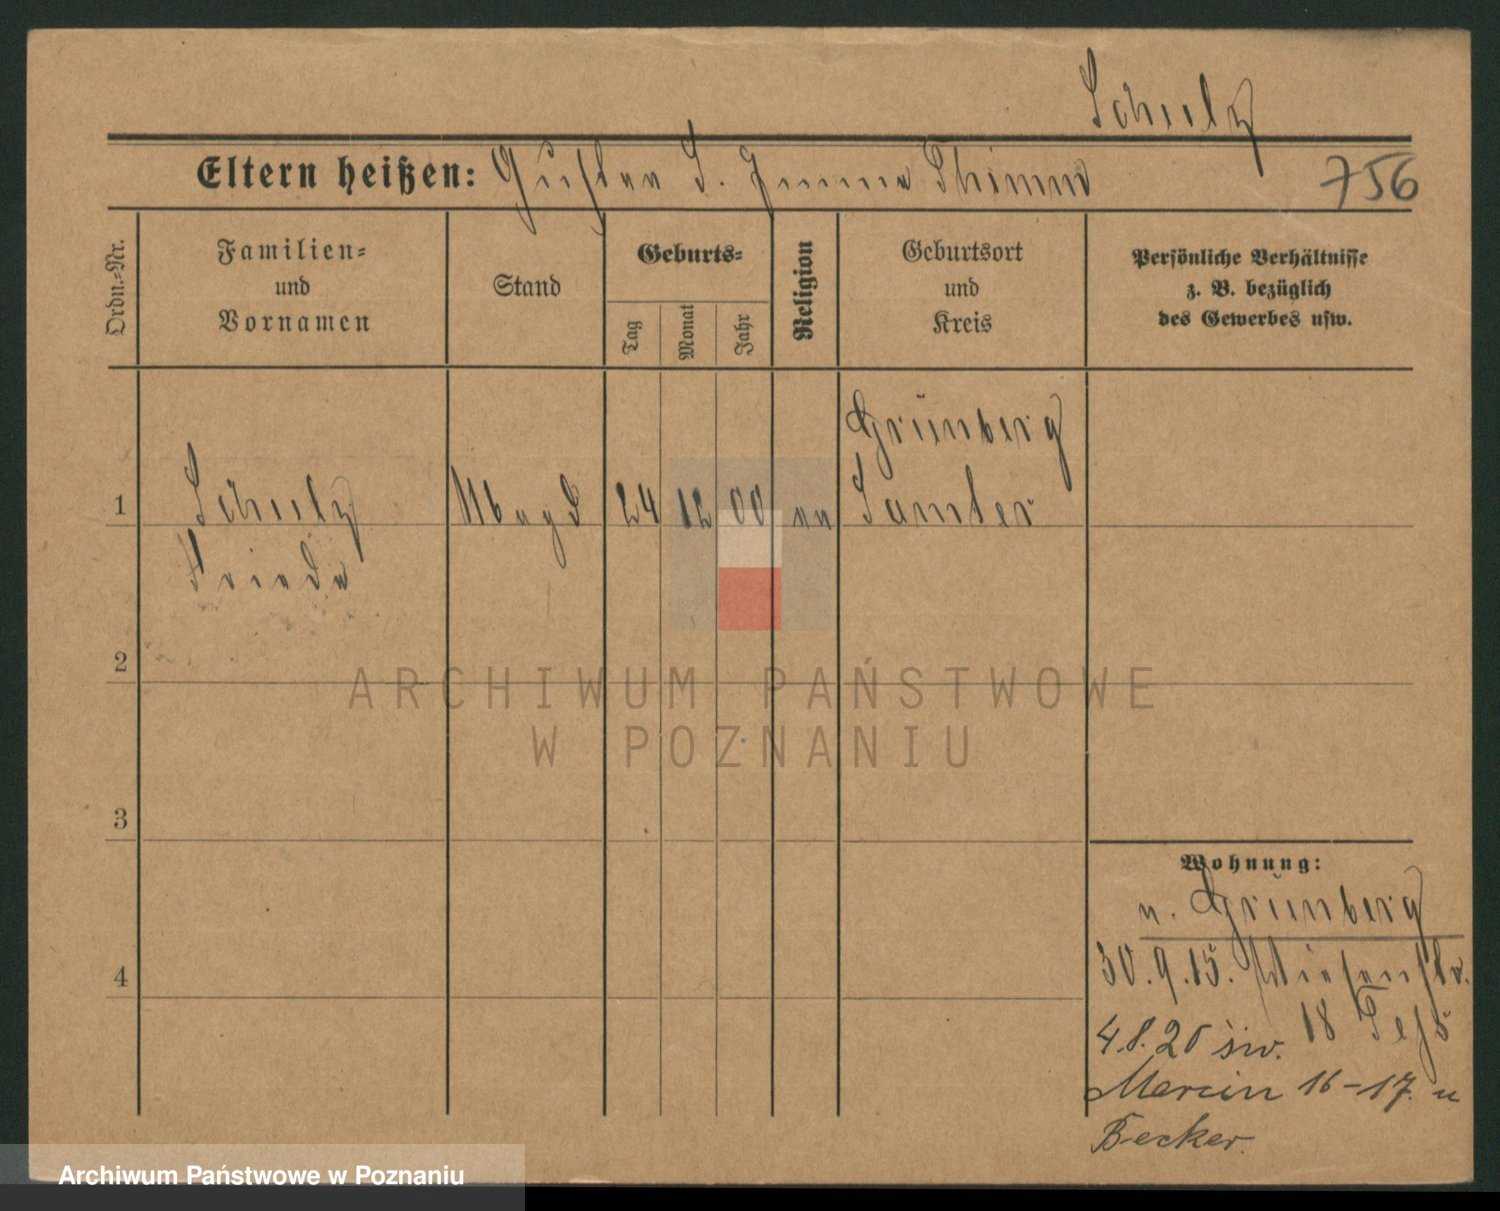 Schulz
Eltern heißen: Gustav S. Emma Thimm
756
Ordn.-Nr.
Familien-
und
Vornamen
Stand
Geburts-
Tag
Monat
Jahr
Religion
Geburtsort
und
Kreis
Persönliche Verhältnisse
z. B. bezüglich
des Gewerbes usw.
Grünberg
1 Schulz Magd 24 12 00 ev Samter
Frieda
2
ARCHIWUM PAŃSTWOWE
W POZNANIU
3
Wohnung:
v. Grünberg
4
30.9.15. Wiesenstr.
18
4.8.20 św.
Marcin 16-17. u
Becker.
Archiwum Państwowe w Poznaniu